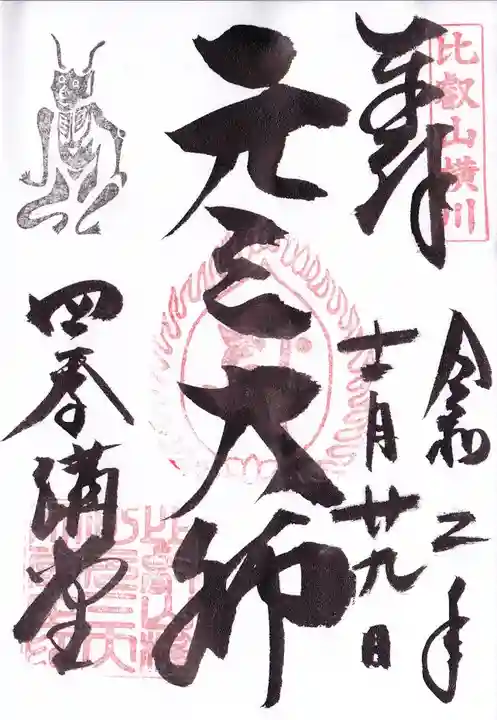 比叡山横川
奉拝
令和二年
十一月廿九日
元三大師
四季講堂